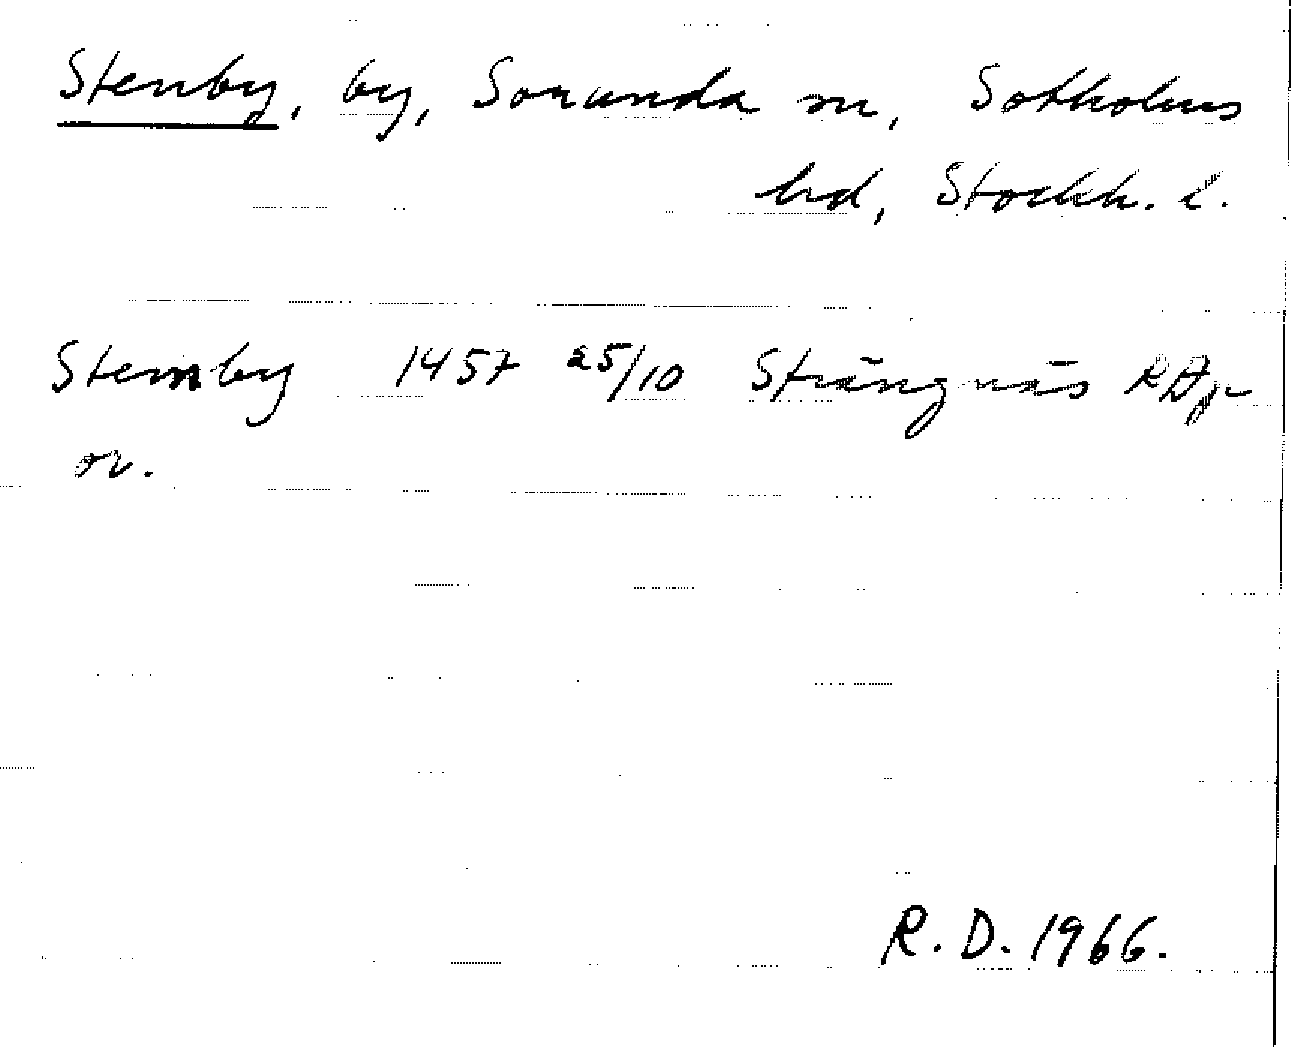 Stenby, by, Sorunda sn, Sotholms
hd, Stockh. l.
Stemby 1457 25/10 Strängnäs RAp
or.
R. D. 1966.